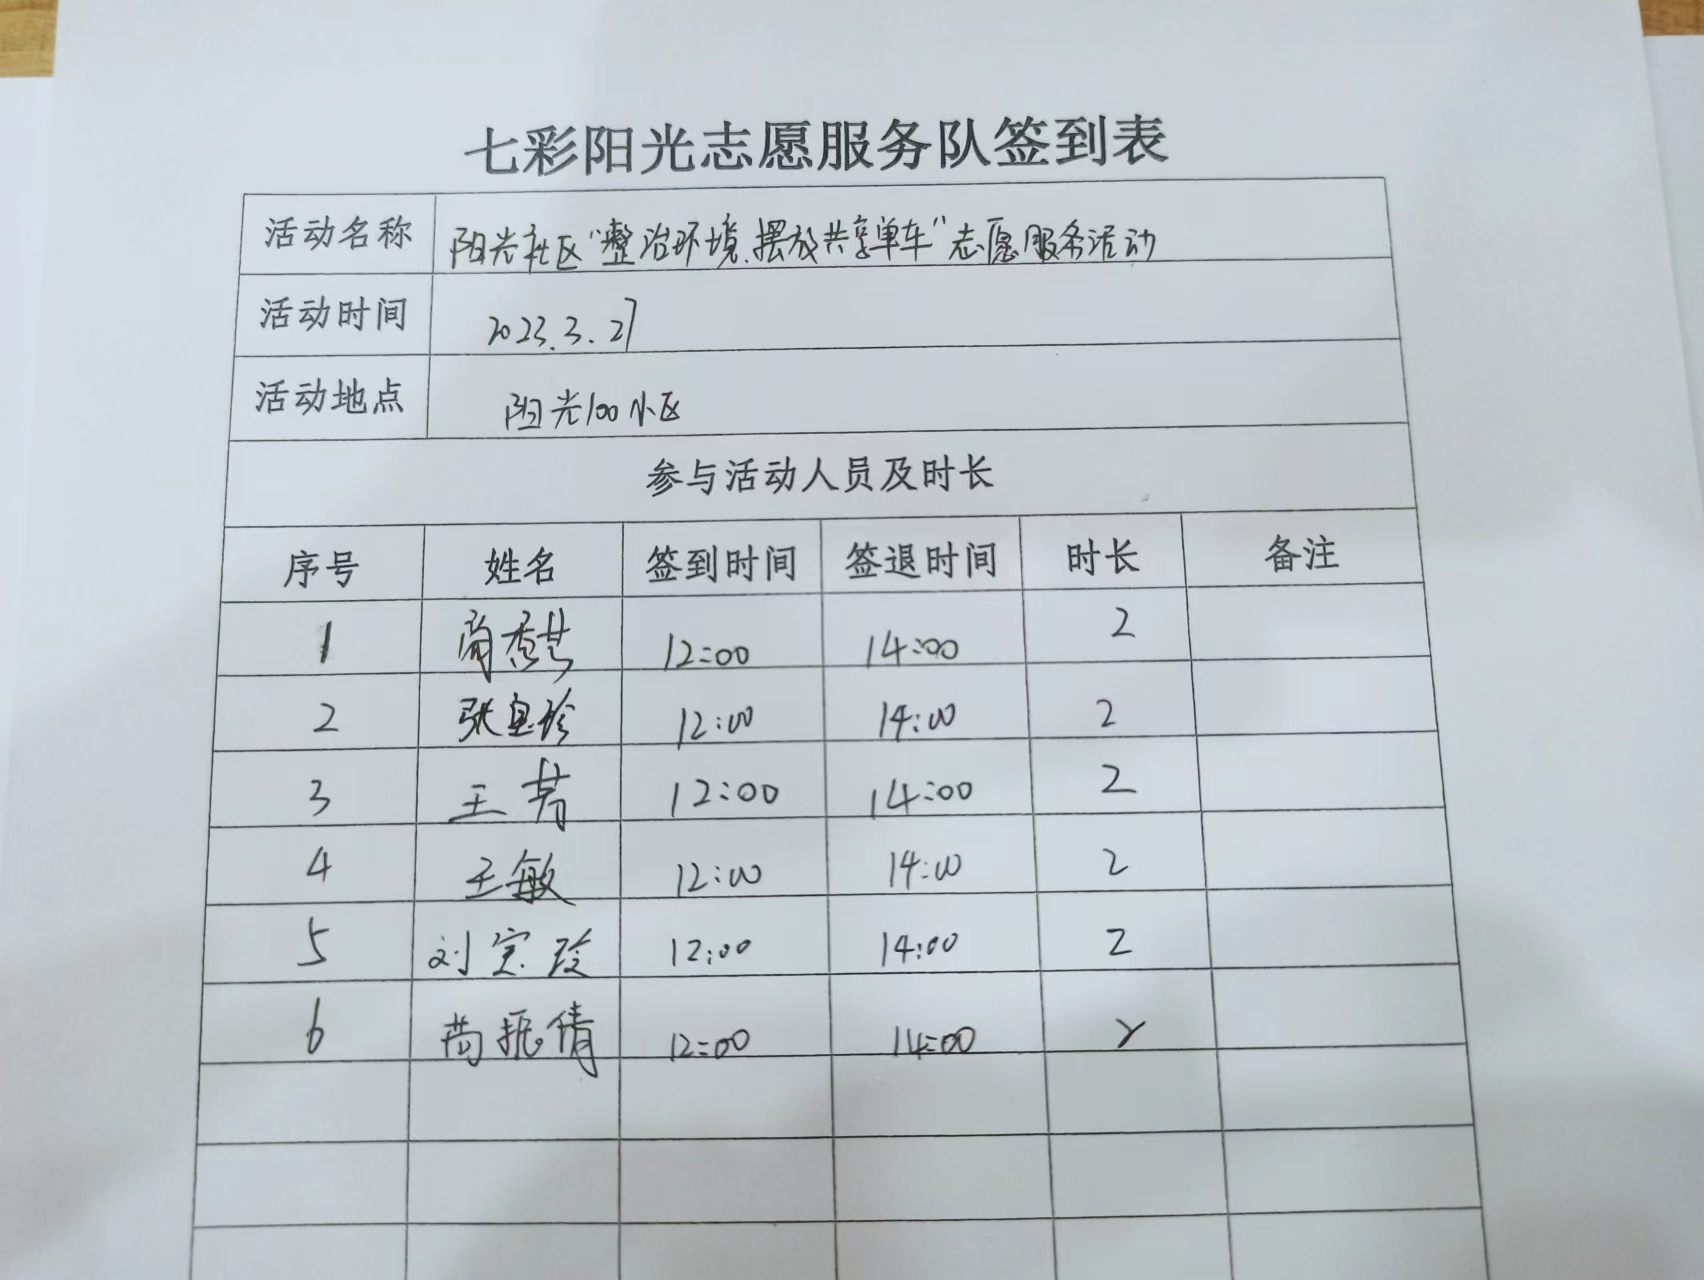 七彩阳光志愿服务队签到表
活动名称 阳光社区“整治环境、摆放共享单车”志愿服务活动
活动时间 2023.3.27
活动地点 阳光100小区
参与活动人员及时长
序号 姓名 签到时间 签退时间 时长 备注
1 12:00 14:00 2
2 12:00 14:00 2
3 王芳 12:00 14:00 2
4 王敏 12:00 14:00 2
5 12:00 14:00 2
6 12:00 14:00 2